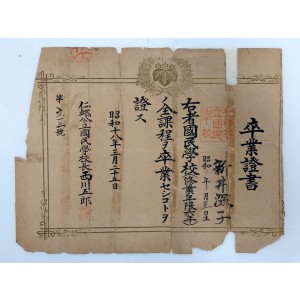 卒業證書
新井深子
昭和 年 月 日生
右者國民學校(修業年限六年)
ノ全課程ヲ卒業セシコトヲ
證ス
昭和十八年三月二十五日
仁郷公立國民學校長西川五郎
第六二號